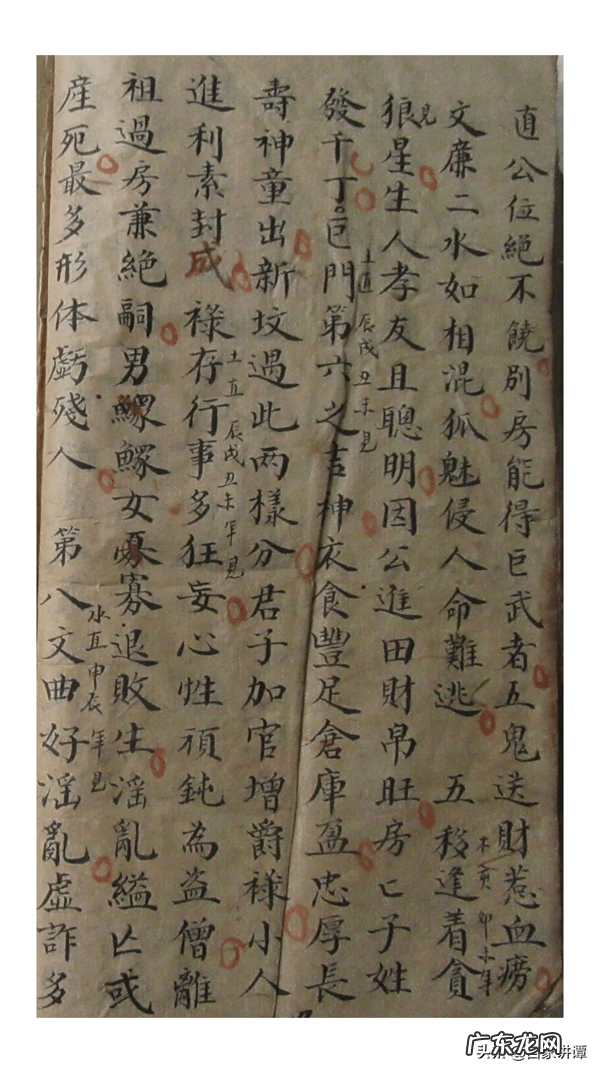 直公位絶不饒別房能得巨武者五鬼送財惹血癆
文廉二水如相混狐魅侵人命難逃 五移逢着貪
木亥卯未年
見
狼星生人孝友且聰明因公進田財帛旺房亡子姓
發千丁巨門第六之吉神衣食豐足倉庫盈忠厚長
土直辰戌丑未見
壽神童出新坟過此両樣分君子加官增爵祿小人
進利素封成 祿存行事多狂妄心性頑鈍為盜僧離
土直辰戌丑未年見
祖過房兼絶嗣男鰥鰥女寡寡退敗生淫亂縊亡或
産死最多形体虧殘人 第八文曲好淫亂虛詐多
水直申辰年見
广东龙网